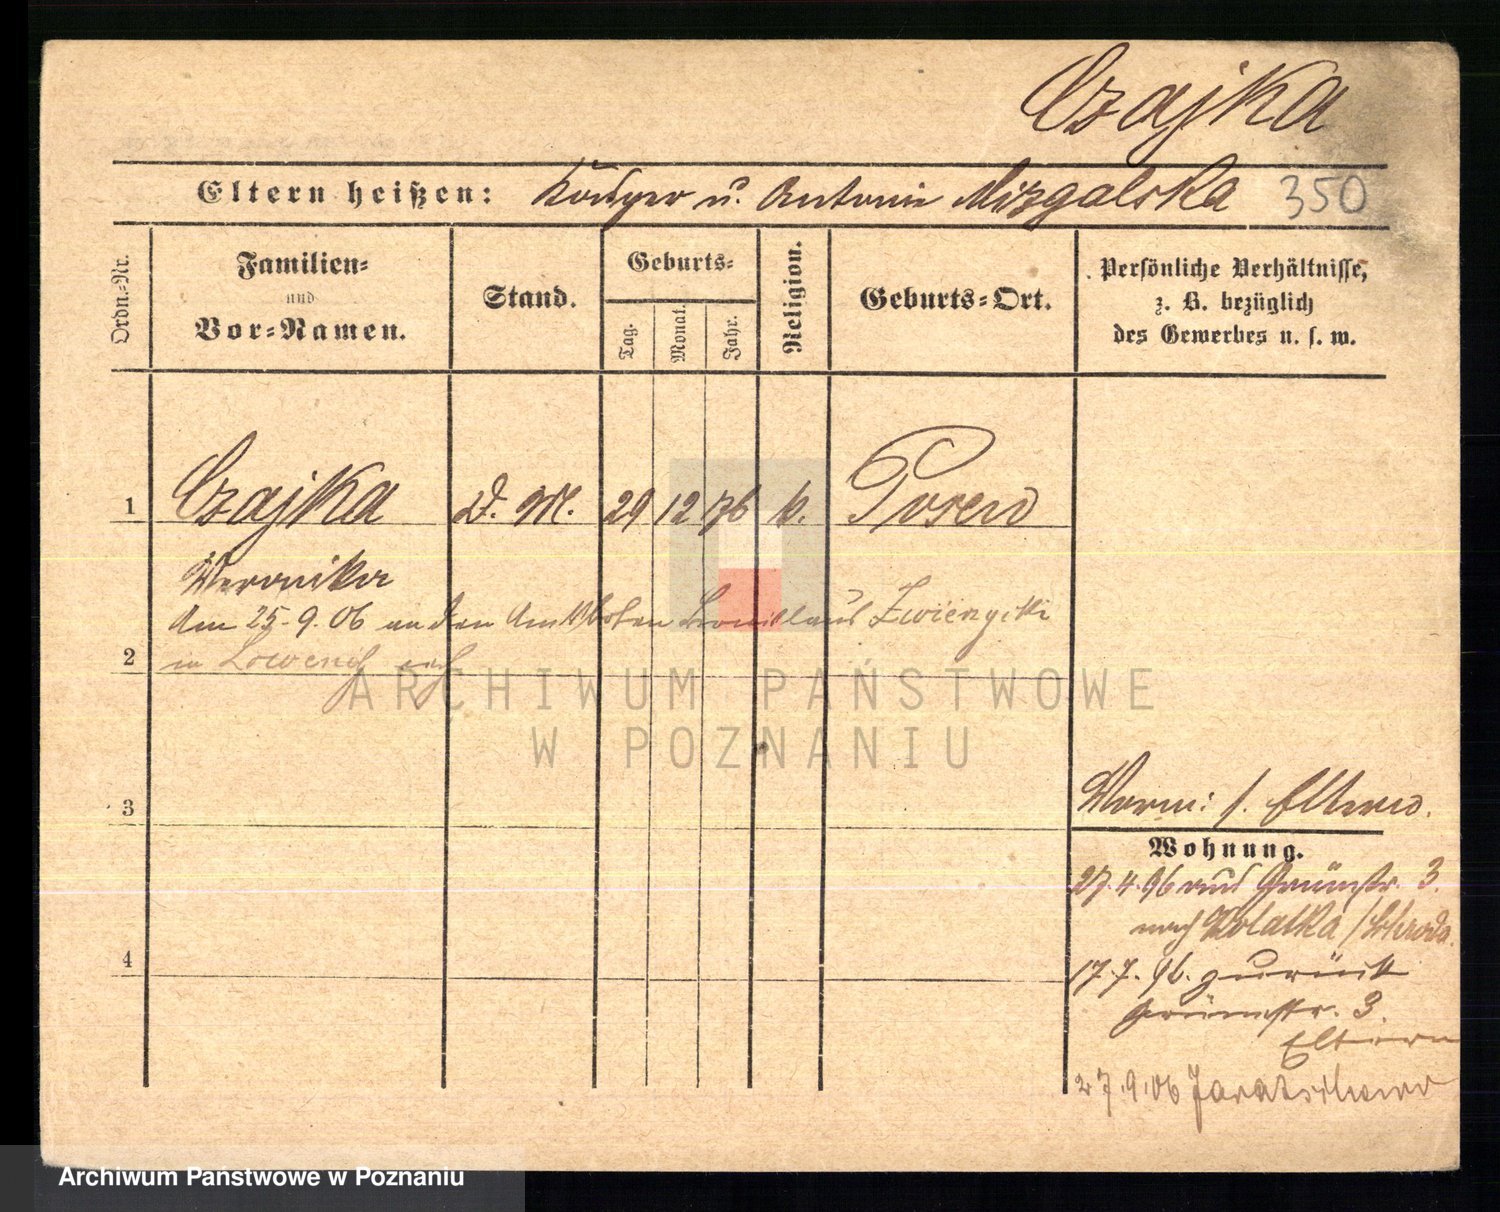 Czajka
Eltern heißen: u. Antonie Mizgalska 350
Ordn.-Nr.
Familien-
und
Vor-Namen.
Stand.
Geburts-
Tag.
Monat.
Jahr.
Religion.
Geburts-Ort.
Persönliche Verhältnisse,
z. B. bezüglich
des Gewerbes u. s. w.
1 Czajka D. M. 29 12 76 k. Posen
Veronika
am 25.9.06 an den
2 in
ARCHIWUM PAŃSTWOWE
W POZNANIU
3
Vorm: s. Eltern.
Wohnung.
27.4.96 aus Grünstr. 3.
nach /Schroda.
4
17.7.96. zurück
Grünstr. 3.
Eltern
27.9.06 Jaratschewo
Archiwum Państwowe w Poznaniu